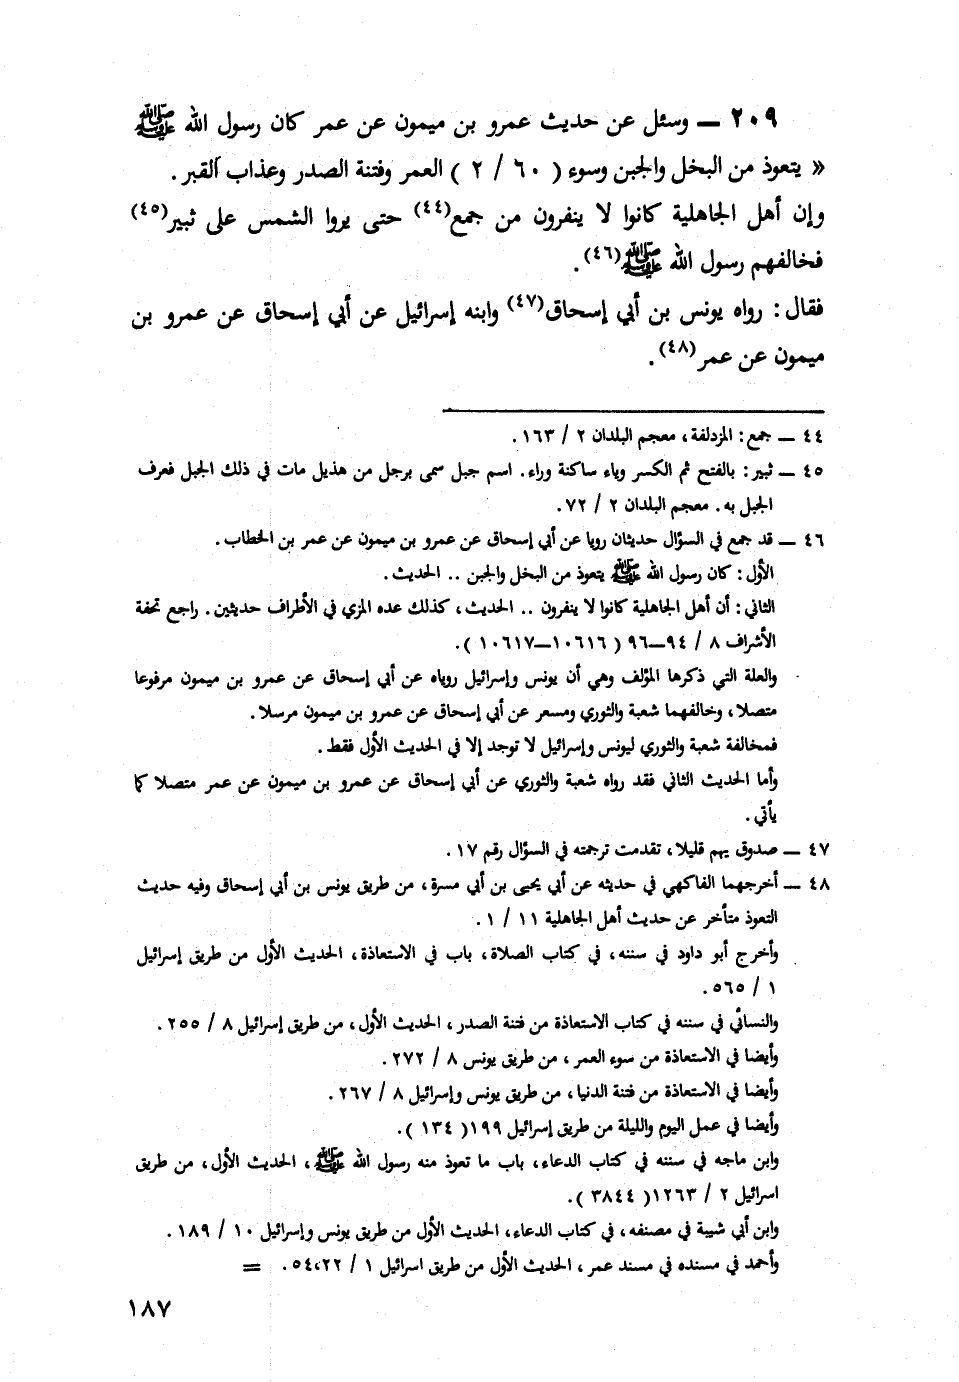 ٢٠٩ ــ وسئل عن حديث عمرو بن ميمون عن عمر كان رسول الله ﷺ
« يتعوذ من البخل والجبن وسوء ( ٦٠ / ٢ ) العمر وفتنة الصدر وعذاب القبر .
وإن أهل الجاهلية كانوا لا ينفرون من جمع(٤٤) حتى يروا الشمس على ثبير(٤٥)
فخالفهم رسول الله ﷺ(٤٦).
فقال : رواه يونس بن أبي إسحاق(٤٧) وابنه إسرائيل عن أبي إسحاق عن عمرو بن
ميمون عن عمر(٤٨).
٤٤ ــ جمع : المزدلفة ، معجم البلدان ٢ / ١٦٣ .
٤٥ ــ ثبير : بالفتح ثم الكسر وياء ساكنة وراء . اسم جبل سمى برجل من هذيل مات في ذلك الجبل فعرف
الجبل به . معجم البلدان ٢ / ٧٢ .
٤٦ ــ قد جمع في السؤال حديثان رويا عن أبي إسحاق عن عمرو بن ميمون عن عمر بن الخطاب .
الأول : كان رسول الله ﷺ يتعوذ من البخل والجبن .. الحديث .
الثاني : أن أهل الجاهلية كانوا لا ينفرون .. الحديث ، كذلك عده المزي في الأطراف حديثين . راجع تحفة
الأشراف ٨ / ٩٤ــ٩٦ ( ١٠٦١٦ــ١٠٦١٧ ).
والعلة التي ذكرها المؤلف وهي أن يونس وإسرائيل روياه عن أبي إسحاق عن عمرو بن ميمون مرفوعا
متصلا ، وخالفهما شعبة والثوري ومسعر عن أبي إسحاق عن عمرو بن ميمون مرسلا .
فمخالفة شعبة والثوري ليونس وإسرائيل لا توجد إلا في الحديث الأول فقط .
وأما الحديث الثاني فقد رواه شعبة والثوري عن أبي إسحاق عن عمرو بن ميمون عن عمر متصلا كما
يأتي .
٤٧ ــ صدوق يهم قليلا ، تقدمت ترجمته في السؤال رقم ١٧ .
٤٨ ــ أخرجهما الفاكهي في حديثه عن أبي يحيى بن أبي مسرة ، من طريق يونس بن أبي إسحاق وفيه حديث
التعوذ متأخر عن حديث أهل الجاهلية ١١ / ١ .
وأخرج أبو داود في سننه ، في كتاب الصلاة ، باب في الاستعاذة ، الحديث الأول من طريق إسرائيل
١ / ٥٦٥ .
والنسائي في سننه في كتاب الاستعاذة من فتنة الصدر ، الحديث الأول ، من طريق إسرائيل ٨ / ٢٥٥ .
وأيضا في الاستعاذة من سوء العمر ، من طريق يونس ٨ / ٢٧٢ .
وأيضا في الاستعاذة من فتنة الدنيا ، من طريق يونس وإسرائيل ٨ / ٢٦٧ .
وأيضا في عمل اليوم والليلة من طريق إسرائيل ١٩٩( ١٣٤ ).
وابن ماجه في سننه في كتاب الدعاء ، باب ما تعوذ منه رسول الله ﷺ ، الحديث الأول ، من طريق
اسرائيل ٢ / ١٢٦٣( ٣٨٤٤ ).
وابن أبي شيبة في مصنفه ، في كتاب الدعاء ، الحديث الأول من طريق يونس وإسرائيل ١٠ / ١٨٩ .
وأحمد في مسنده في مسند عمر ، الحديث الأول من طريق اسرائيل ١ / ٥٤،٢٢ . =
١٨٧